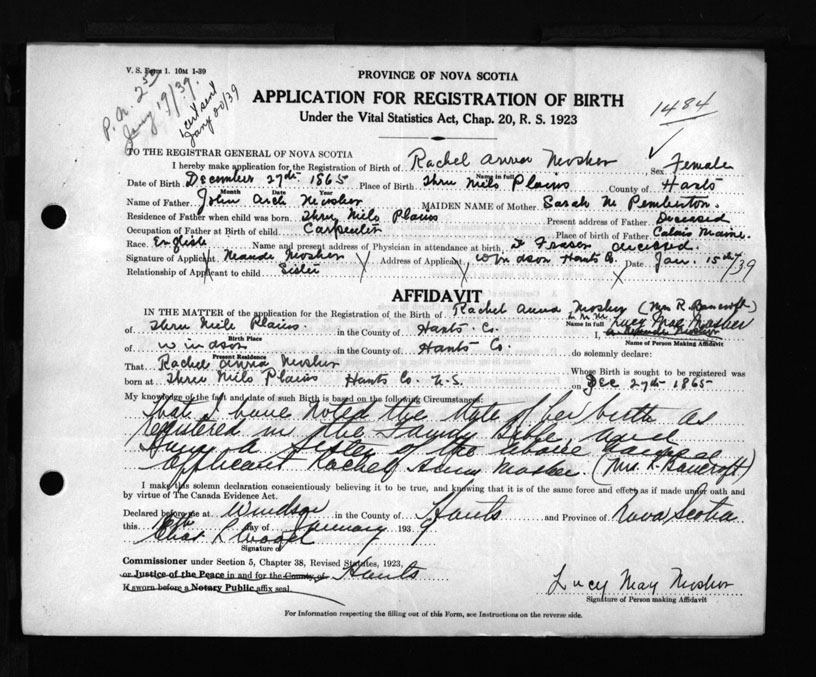 V. S. Form 1. 10M 1-39
P. N. 2
Jany 17/39.
Cert sent
Jany 20/39
PROVINCE OF NOVA SCOTIA
APPLICATION FOR REGISTRATION OF BIRTH
Under the Vital Statistics Act, Chap. 20, R. S. 1923
1484
TO THE REGISTRAR GENERAL OF NOVA SCOTIA
I hereby make application for the Registration of Birth of Rachel Anna Mosher Name in full Sex Female
Date of Birth December 27th 1865 Place of Birth Thru Mile Plains County of Hants
Month Date Year
Name of Father John Arch Mosher MAIDEN NAME of Mother Sarah M Pemberton.
Residence of Father when child was born. Thru Mile Plains Present address of Father Deceased
Occupation of Father at Birth of child Carpenter Place of Birth of Father Calais Maine.
Race. English Name and present address of Physician in attendance at birth, Fraser deceased.
Signature of Applicant Maude Mosher Address of Applicant Windsor Hants Co. Date Jan. 15th/39
Relationship of Applicant to child Sister
AFFIDAVIT
IN THE MATTER of the application for the Registration of the Birth of Rachel Anna Mosher (Mrs R. Bancroft)
Name in full
of Thru Mile Plains in the County of Hants Co. I, Lucy May Mosher
Birth Place
of Windsor in the County of Hants Co. do solemnly declare:
Present Residence Name of Person Making Affidavit
That Rachel Anna Mosher Whose Birth is sought to be registered was
born at Thru Mile Plains Hants Co. N.S. on Dec 27th 1865
My knowledge of the fact and date of such Birth is based on the following Circumstances:
that I have noted the date of her birth as
registered in the Family Bible, and
being a sister of the above named
applicant Rachel Anna Mosher. (Mrs R. Bancroft)
I make this solemn declaration conscientiously believing it to be true, and knowing that it is of the same force and effect as if made under oath and
by virtue of The Canada Evidence Act.
Declared before me at Windsor in the County of Hants and Province of Nova Scotia
this day of January 1939
Signature of
Commissioner under Section 5, Chapter 38, Revised Statutes, 1923,
or Justice of the Peace in and for the County of Hants
If sworn before a Notary Public affix seal.
Lucy May Mosher
Signature of Person making Affidavit
For Information respecting the filling out of this Form, see Instructions on the reverse side.